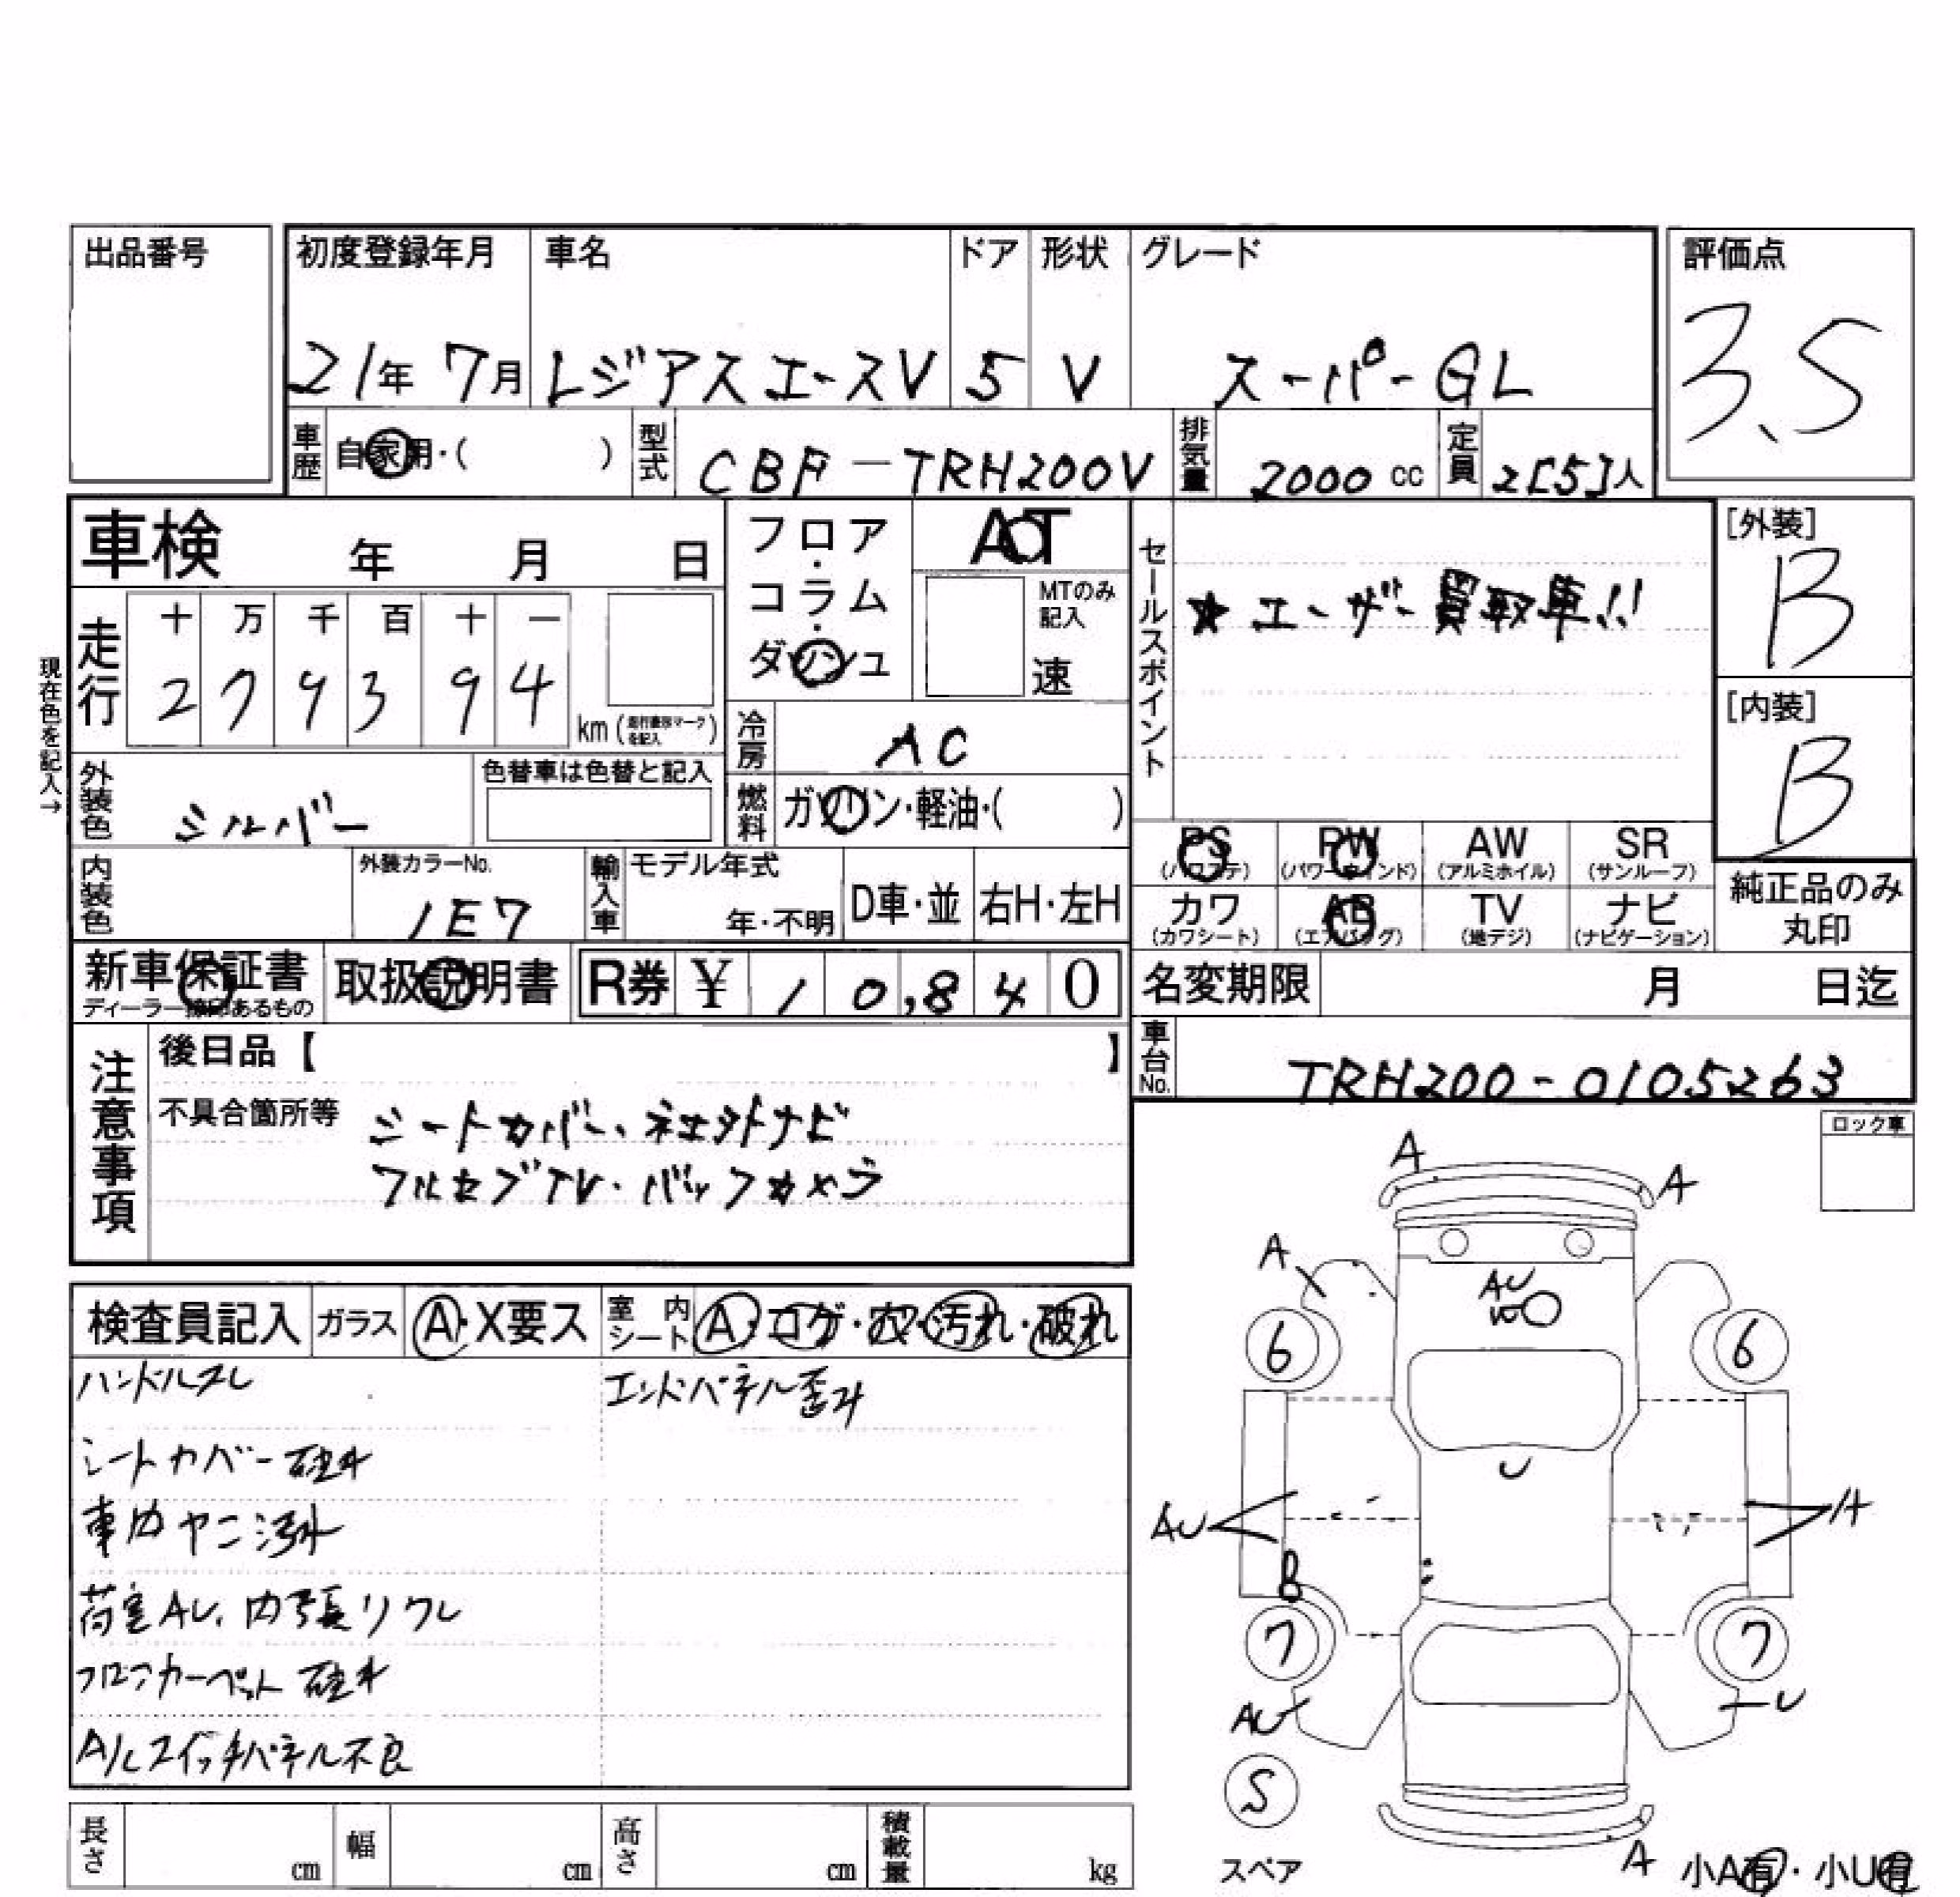 出品番号
初度登録年月 車名 ドア 形状 グレード
21年 7月 レジアスエースV 5 V スーパーGL
評価点
3.5
車歴 自家用・( ) 型式 CBF-TRH200V 排気量 2000 cc 定員 2[5]人
車検 年 月 日
フロア・コラム・ダッシュ
AT
MTのみ記入
速
セールスポイント
★ユーザー買取車!!
[外装]
B
[内装]
B
走行 十 万 千 百 十 一
2 7 9 3 9 4 km
(走行書形マークを記入)
現在色を記入→
冷房 AC
外装色 シルバー
色替車は色替と記入
燃料 ガソリン・軽油・( )
PS (パワステ) PW (パワーウインド) AW (アルミホイル) SR (サンルーフ)
カワ (カワシート) AB (エアバッグ) TV (地デジ) ナビ (ナビゲーション)
純正品のみ丸印
内装色 外装カラーNo. 1E7 輸入車 モデル年式 年・不明 D車・並 右H・左H
新車保証書
取扱説明書 R券 ¥ 10,840
名変期限 月 日迄
車台No. TRH200-0105263
注意事項
後日品【 】
不具合箇所等 シートカバー、社外ナビ
フルセグTV・バックカメラ
ロック車
検査員記入 ガラス A・X要ス 室内シート A・コゲ・穴・汚れ・破れ
ハンドルスレ エンドパネル歪み
シートカバー破れ
車内ヤニ汚れ
荷室AU、内張リワレ
フロアカーペット破れ
A/Cスイッチパネル不良
A
A
A
AU
W
6
6
U
AU
A
B
7
7
AU
U
S
スペア
A
小A有・小U有
長さ cm 幅 cm 高さ cm 積載量 kg